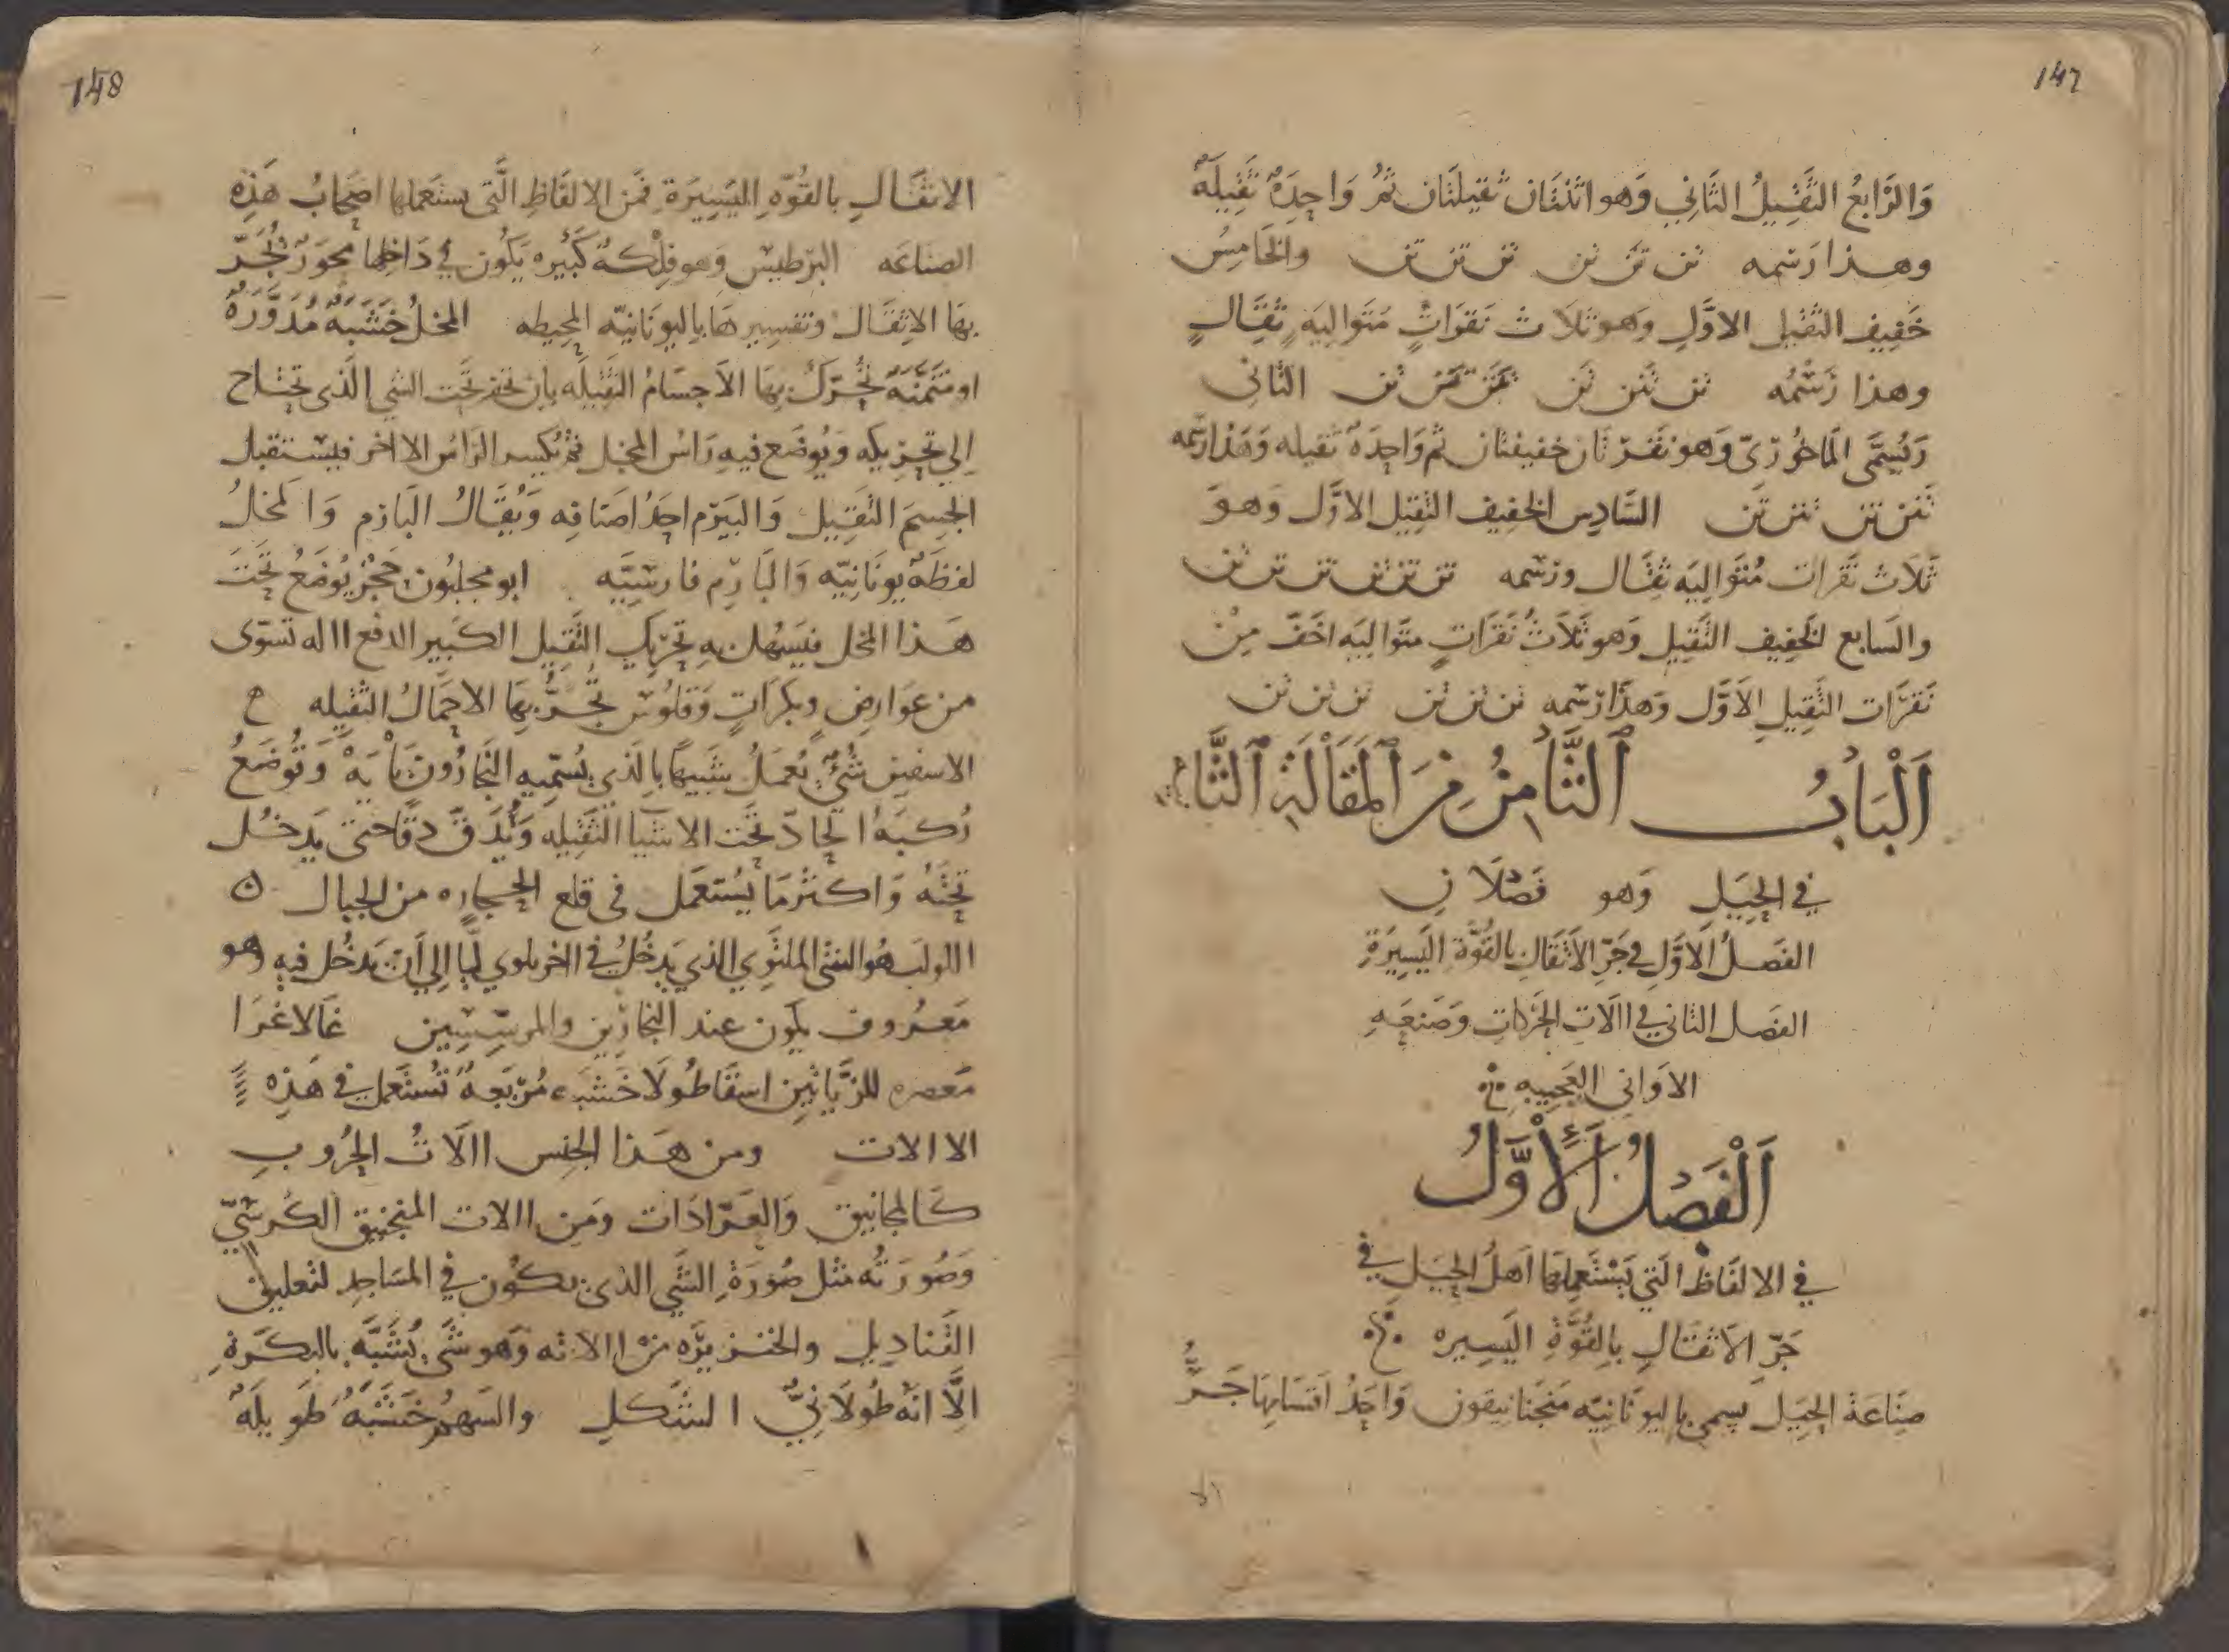 147
وَالرَّابِعُ الثَّقِيلُ الثَّانِي وَهو اثنَتَان ثَقيلتَان ثمُ وَاحِدَةٌ ثَقِيلَةٌ
وهــذا رَسْمه تن تن تن تن تن تن والخَامِسُ
خَفِيف الثقيل الاوَّلِ وهو ثلاث نَقرَاتٍ مُتَوالِيَةٍ ثِقَالٍ
وهذا رَسْمُه تن تنن تن تنن تنن تن الثانى
وَيُسَمَّى المَاخُورِىّ وَهو نَقرتان خفيفتان ثم وَاحِدَةٌ ثَقيله وَهَذا رسمه
تنن تن تنن تن السَّادِس الخفيف الثقِيل الاوَّل وَهوَ
ثَلَاث نَقَرات مُتَوالِيَه ثِقَال ورَسْمه تن تن تن تن تن تن
والسَابع الخَفِيف الثَقِيل وَهو ثَلَاثُ نَقَرَاتٍ متوَاليَه اخَفّ مِنْ
نَقَرَات الثَّقِيلِ الاَوَّل وَهَذَا رَسْمه تن تن تن تن تن تن
اَلْبَابُ الثَّامِنُ مِنَ المَقَالَةِ الثَّانِيَةِ
فِي الحِيَلِ وَهو فَصْلَانِ
الفَصلُ الاَوَّلِ فِي جَرِّ الاَثْقَالِ بالقُوَّةِ اليَسِيرَةِ
الفَصل الثانى فِي الَات الحَرَكَاتِ وَصَنعَةِ
الاَوَانى العَجِيبه
اَلْفَصْلُ الْأَوَّلُ
فِي الالفَاظ الَّتِي يَسْتَعمِلهَا اَهلُ الحِيَل فِي
جَرِّ الاَثقَالِ بِالقُوَّةِ اليَسِيره
صِنَاعَة الحِيَل يسمى باليونَانيّه مَنجَنانيقون وَاحَدُ اقسَامِهَا جَــرُّ
148
الاثقَــالِ بالقُوّةِ اليَسِيرَةِ فمَن الالفَاظِ الَّتى يستَعملها اصحَابُ هَذِهِ
الصناعَه البَرَطيس وَهو فِلْكَةٌ كَبيره يَكُون فِي دَاخِلها محوَرٌ تُجَرّ
بهَا الاثقَال وَتفسِيرهَا باليونَانيّه المُحِيطه المخلُ خَشَبَةٌ مُدَوَّرَةٌ
او مُثَمَّنَةٌ تُحَرَّكُ بِهَا الاَجسَامُ الثَّقِيلَه بِان تحفر تَحت الشى الَّذى تحتاج
اِلى تَحرِيكه وَيُوضَع فيهِ رَاسُ المخل ثمّ يُكبس الرَاسُ الاَخر فيستقبل
الجِسمَ الثَّقِيل وَالبَيرم احَدُ اصنَافِه وَيُقَالُ البَارم وَالمَخلُ
لفظَةٌ يونَانِيّه وَالبَارِم فارسِيَّه ابو مجليون حَجَرٌ يُوضَعُ تَحتَ
هَــذا المخل فيَسهُل بِهِ تَحرِيك الثَّقِيل الكَبير الدفع االه تسوّى
من عَوَارِض وبكرَاتٍ وَقلوسٍ تُجَــرُّ بهَا الاحمَالُ الثَّقيله ع
الاسفين شَىٌ يُعمَلُ شَبيهًا بِالَّذى يُسَمِّيهِ النَّجّارُونَ بَايَةْ وَتُوضَعُ
رُكبَة الحَادّ تَحت الاشيا الثَّقيله وَيُدَقّ دَقًّا حتى يَدخــل
تَحتَهُ وَاكثر مَا يُستَعمَل فى قلع الحجاره من الجبال
اللولب هُو الشى الملتوِي الذي يَدخُلُ فى اخر ملوي لَيًّا الِي اَن يَدخُل فيه وهو
مَعرُوف يكون عند النجارين والمرسِّسِين غَالاغرَا
مَعصره للزيَّاتِين اسقاطُولَا خَشَبَه مُرَبَّعةٌ تُستَعمَل فِى هَذِه
الاالات وَمن هَــذا الجنس االَاتُ الحرُوبِ
كَالمجَانيق وَالعَرّادَات وَمِن االات المنجَنيق الكُرسِيّ
وَصُورَتُه مثل صُورَة الشَي الذى يكُون فِي المسَاجد لتَعليق
القنَادِيل والخنزيرَه من االاته وَهو شَى يُشَبَّه بالبكَرَةِ
اِلَّا انّه طُولَانِيٌّ الشكلِ والسَهمُ خَشَبَةٌ طَوِيلَةٌ